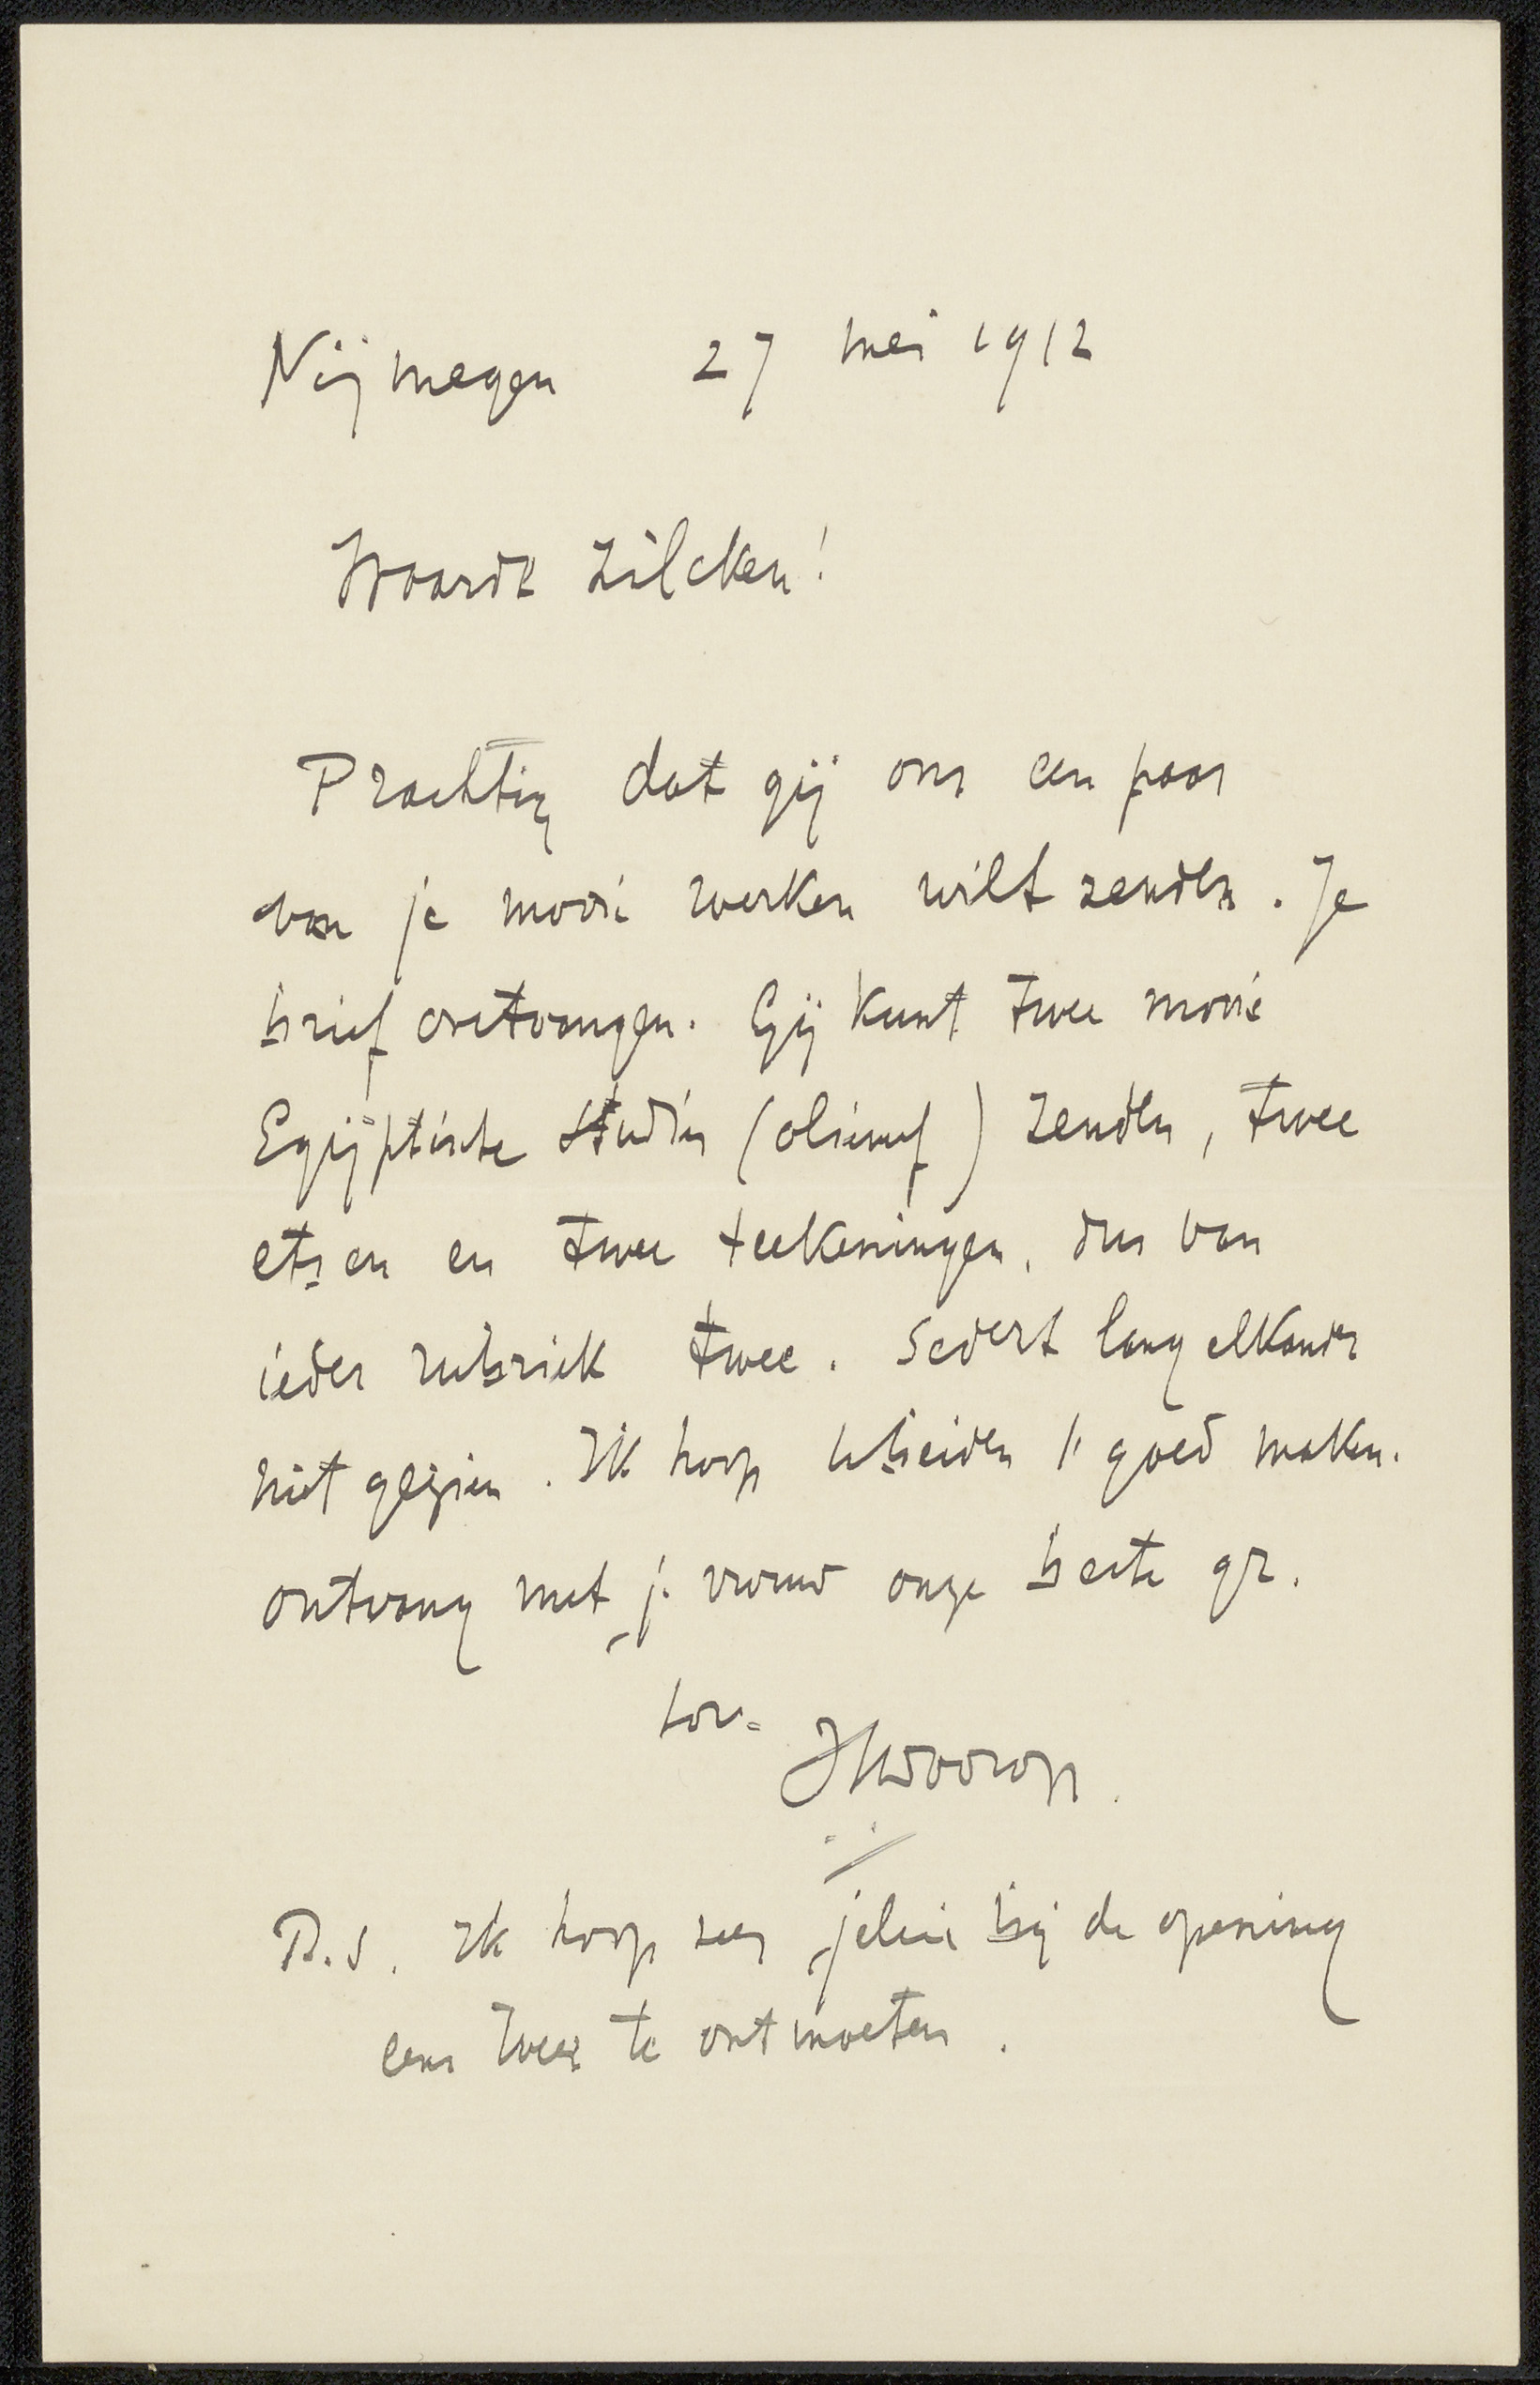 Nijmegen 27 mei 1912
Waarde Zilcken!
Prachtig dat gij ons een paar
van je mooie werken wilt zenden. Je
brief ontvangen. Gij kunt twee mooie
Egijptische studies (olieverf) zenden, twee
etsen en twee teekeningen, dus van
ieder rubriek twee. Sedert lang elkander
niet gezien. Ik hoop goed maken.
ontvang met je vrouw onze beste gr.
tov.
JThToorop.
P.S. Ik hoop zeer jelui bij de opening
eens weer te ontmoeten.